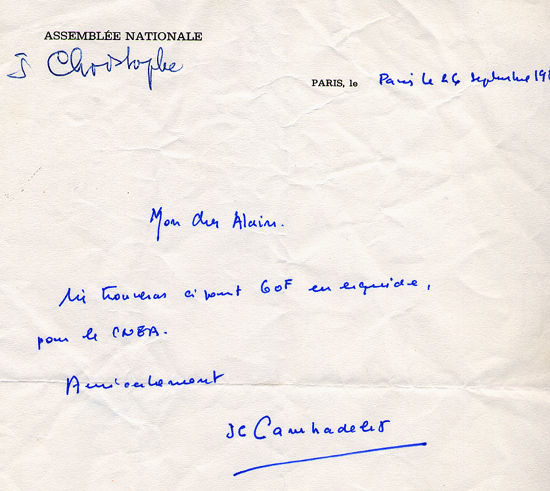 ASSEMBLÉE NATIONALE
J Christophe
PARIS, le Paris le 26 Septembre 19
Mon cher Alain.
trouveras ci joint 60F en liquide,
pour le CNEA.
Amicalement
JC Cambadelis